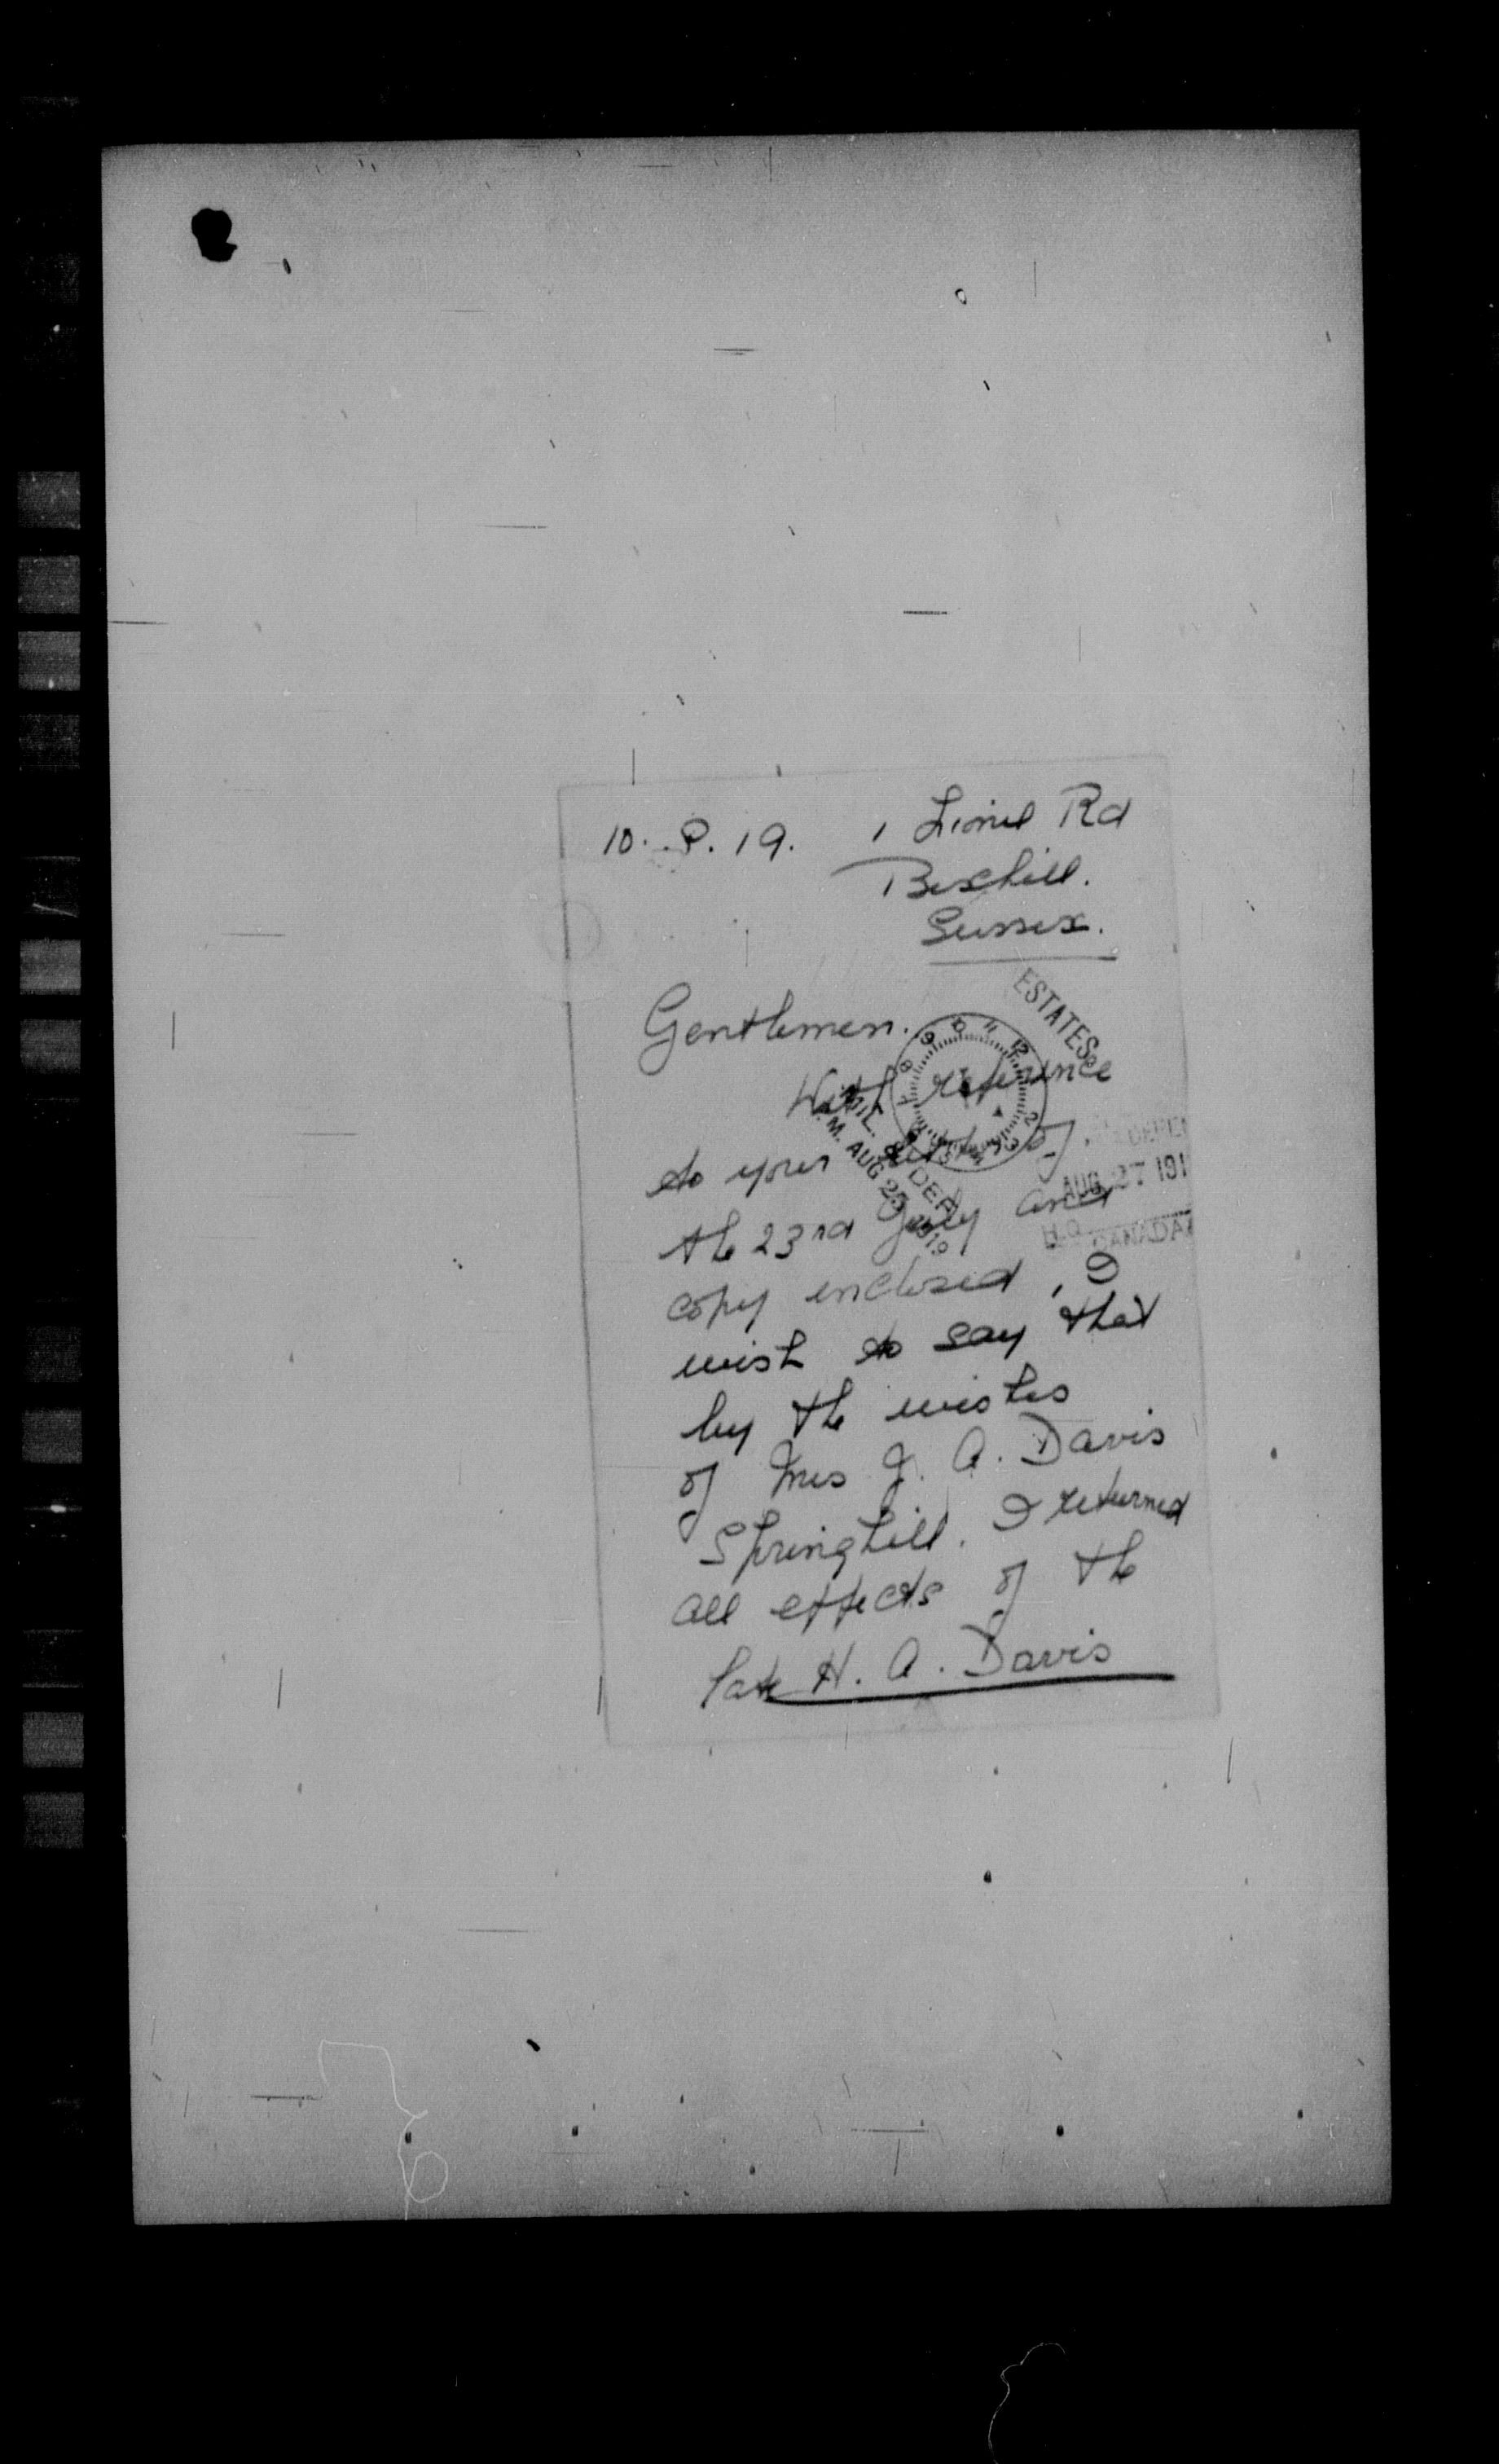 10. 8. 19. 1 Lionel Rd
Bexhill.
Sussex.
Gentlemen.
With reference
to your letter of
the 23rd July and
copy enclosed, I
wish to say that
by the wishes
of Mrs J. A. Davis
Springhill. I returned
all effects of the
late H. A. Davis
ESTATES
MIL. & DEF.
P.M. AUG 25 1919
AUG 27 191
H.Q. CANADA